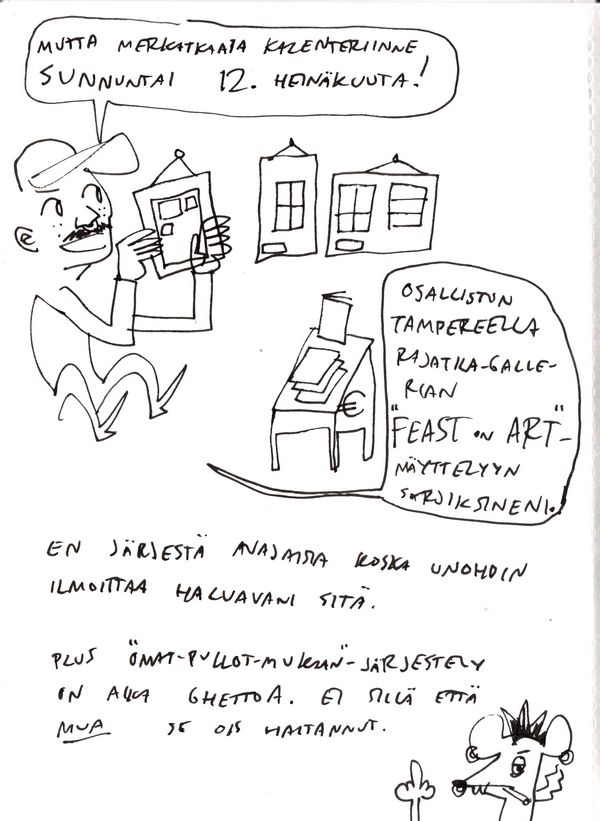 MUTTA MERKATKAATA KALENTERIINNE
SUNNUNTAI 12. HEINÄKUUTA!
OSALLISTUN
TAMPEREELLA
RAJATILA-GALLE-
RIAN
"FEAST ON ART"-
NÄYTTELYYN
SARJIKSINENI.
€
EN JÄRJESTÄ AVAJAISIA KOSKA UNOHDIN
ILMOITTAA HALUAVANI SITÄ.
PLUS "OMAT-PULLOT-MUKAAN"-JÄRJESTELY
ON AIKA GHETTOA. EI SILLÄ ETTÄ
MUA SE OIS HAITANNUT.